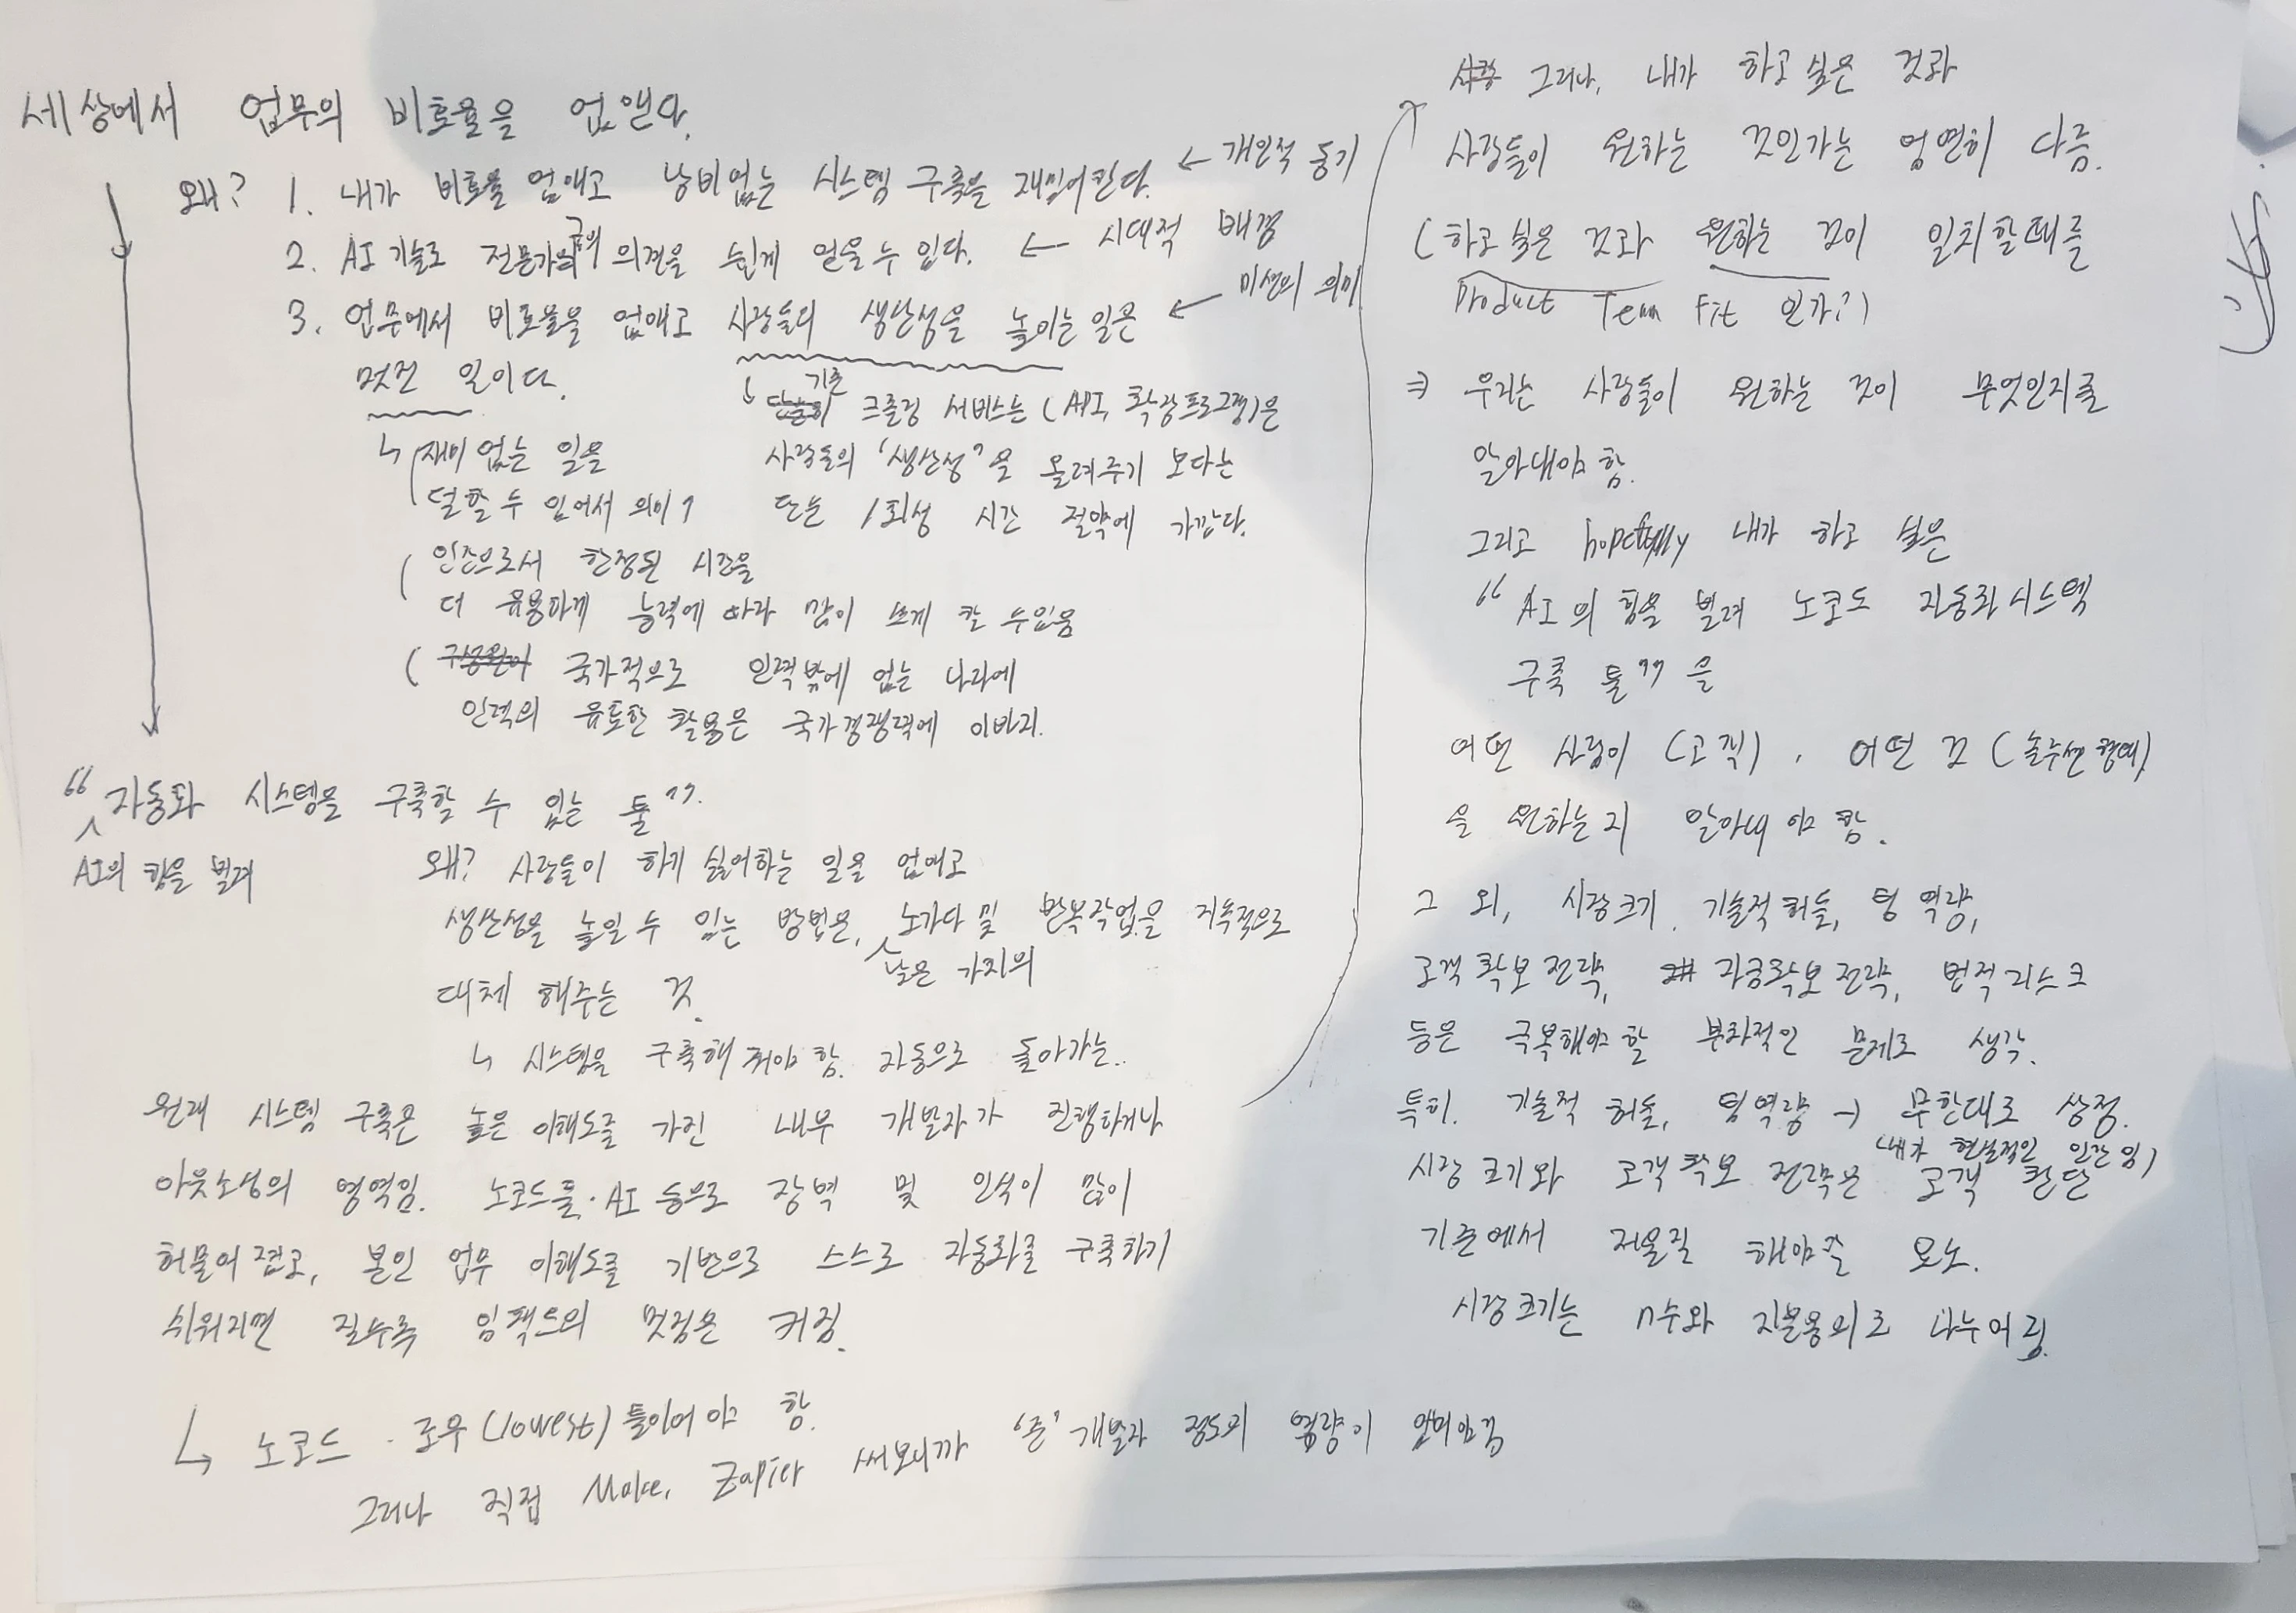 세상에서 업무의 비효율을 없앤다.
왜? 1. 내가 비효율 없애고 낭비없는 시스템 구축을 재밌어한다. ← 개인적 동기
2. AI 기술로 전문가급의 의견을 쉽게 얻을 수 있다. ← 시대적 배경
3. 업무에서 비효율을 없애고 사람들의 생산성을 높이는 일은 ← 미션의 의미
멋진 일이다.
↳ 재미 없는 일을
덜할 수 있어서 의미?
(인간으로서 한정된 시간을
더 유용하게 능력에 따라 많이 쓰게 할 수 있음
(국가적으로 인력밖에 없는 나라에
인력의 유효한 활용은 국가경쟁력에 이바지.
↳ 기존 크롤링 서비스는 (API, 확장프로그램)은
사람들의 '생산성'을 올려주기 보다는
단순 1회성 시간 절약에 가깝다.
“자동화 시스템을 구축할 수 있는 툴”.
AI의 힘을 빌려
왜? 사람들이 하기 싫어하는 일을 없애고
생산성을 높일 수 있는 방법은, 노가다 및 반복작업을 지속적으로
낮은 가치의
대체 해주는 것.
↳ 시스템을 구축해 줘야 함. 자동으로 돌아가는..
원래 시스템 구축은 높은 이해도를 가진 내부 개발자가 진행하거나
아웃소싱의 영역임. 노코드툴·AI 등으로 장벽 및 인식이 많이
허물어졌고, 본인 업무 이해도를 기반으로 스스로 자동화를 구축하기
쉬워지면 질수록 임팩트의 멋짐은 커짐.
↳ 노코드 · 로우(lowest) 툴이어야 함.
그러나 직접 Make, Zapier 써보니까 '준' 개발자 정도의 역량이
그러나, 내가 하고 싶은 것과
사람들이 원하는 것인가는 엄연히 다름.
(하고 싶은 것과 원하는 것이 일치할때를
Product Team Fit 인가?)
⇒ 우리는 사람들이 원하는 것이 무엇인지를
알아내야 함.
그리고 hopefully 내가 하고 싶은
“AI의 힘을 빌려 노코드 자동화시스템
구축 툴”을
어떤 사람이 (고객), 어떤 것 (솔루션 형태)
을 원하는지 알아내야 함.
그 외, 시장크기, 기술적 허들, 팀 역량,
고객확보전략, 자금확보전략, 법적리스크
등은 극복해야 할 부차적인 문제로 생각.
특히. 기술적 허들, 팀역량 → 무한대로 상정.
(내가 현실적인 인간임)
시장 크기와 고객확보 전략은 고객 판단
기준에서 저울질 해야할 요소.
시장크기는 n수와 지불용의로 나누어짐.